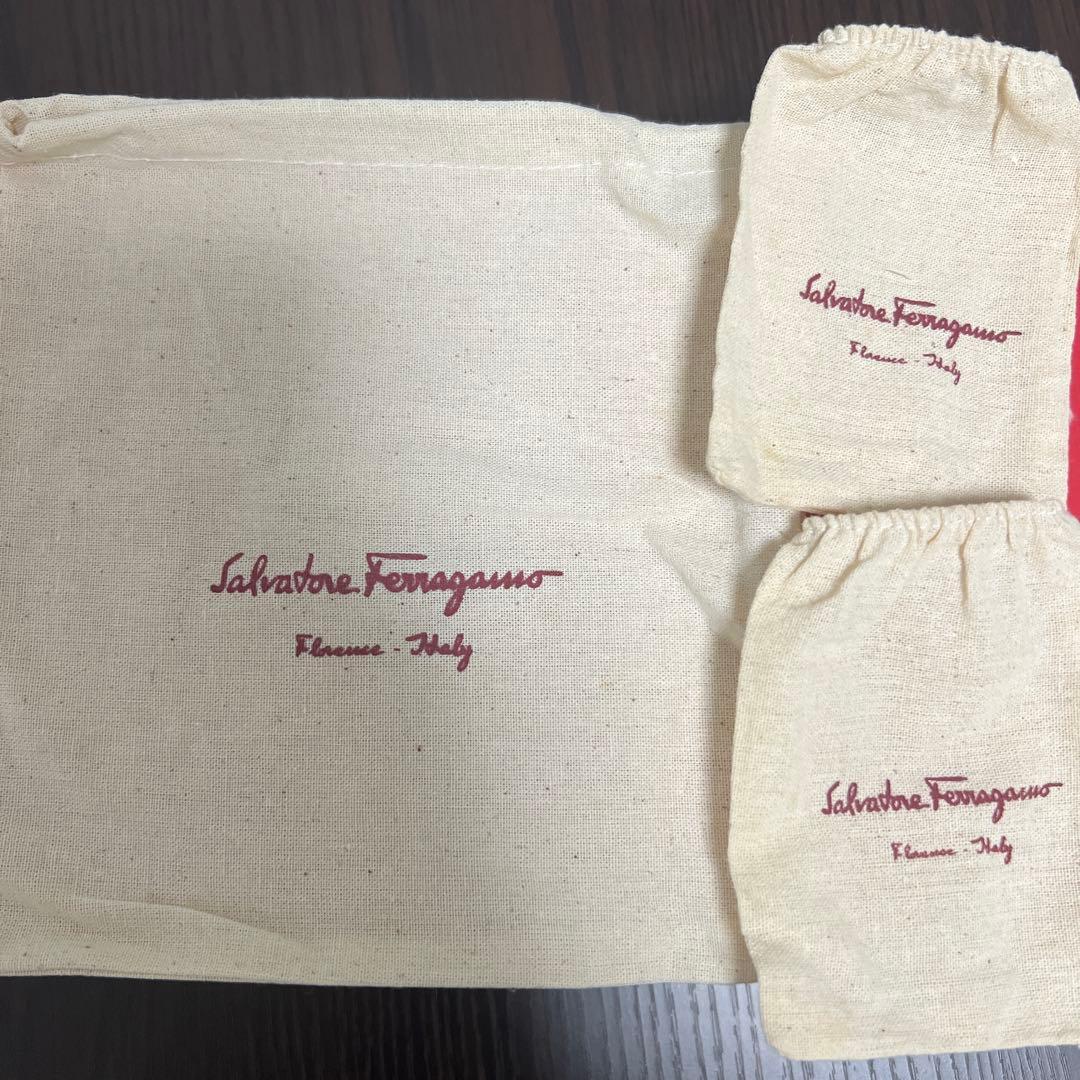 Salvatore Ferragamo
Florence - Italy
Salvatore Ferragamo
Florence - Italy
Salvatore Ferragamo
Florence - Italy